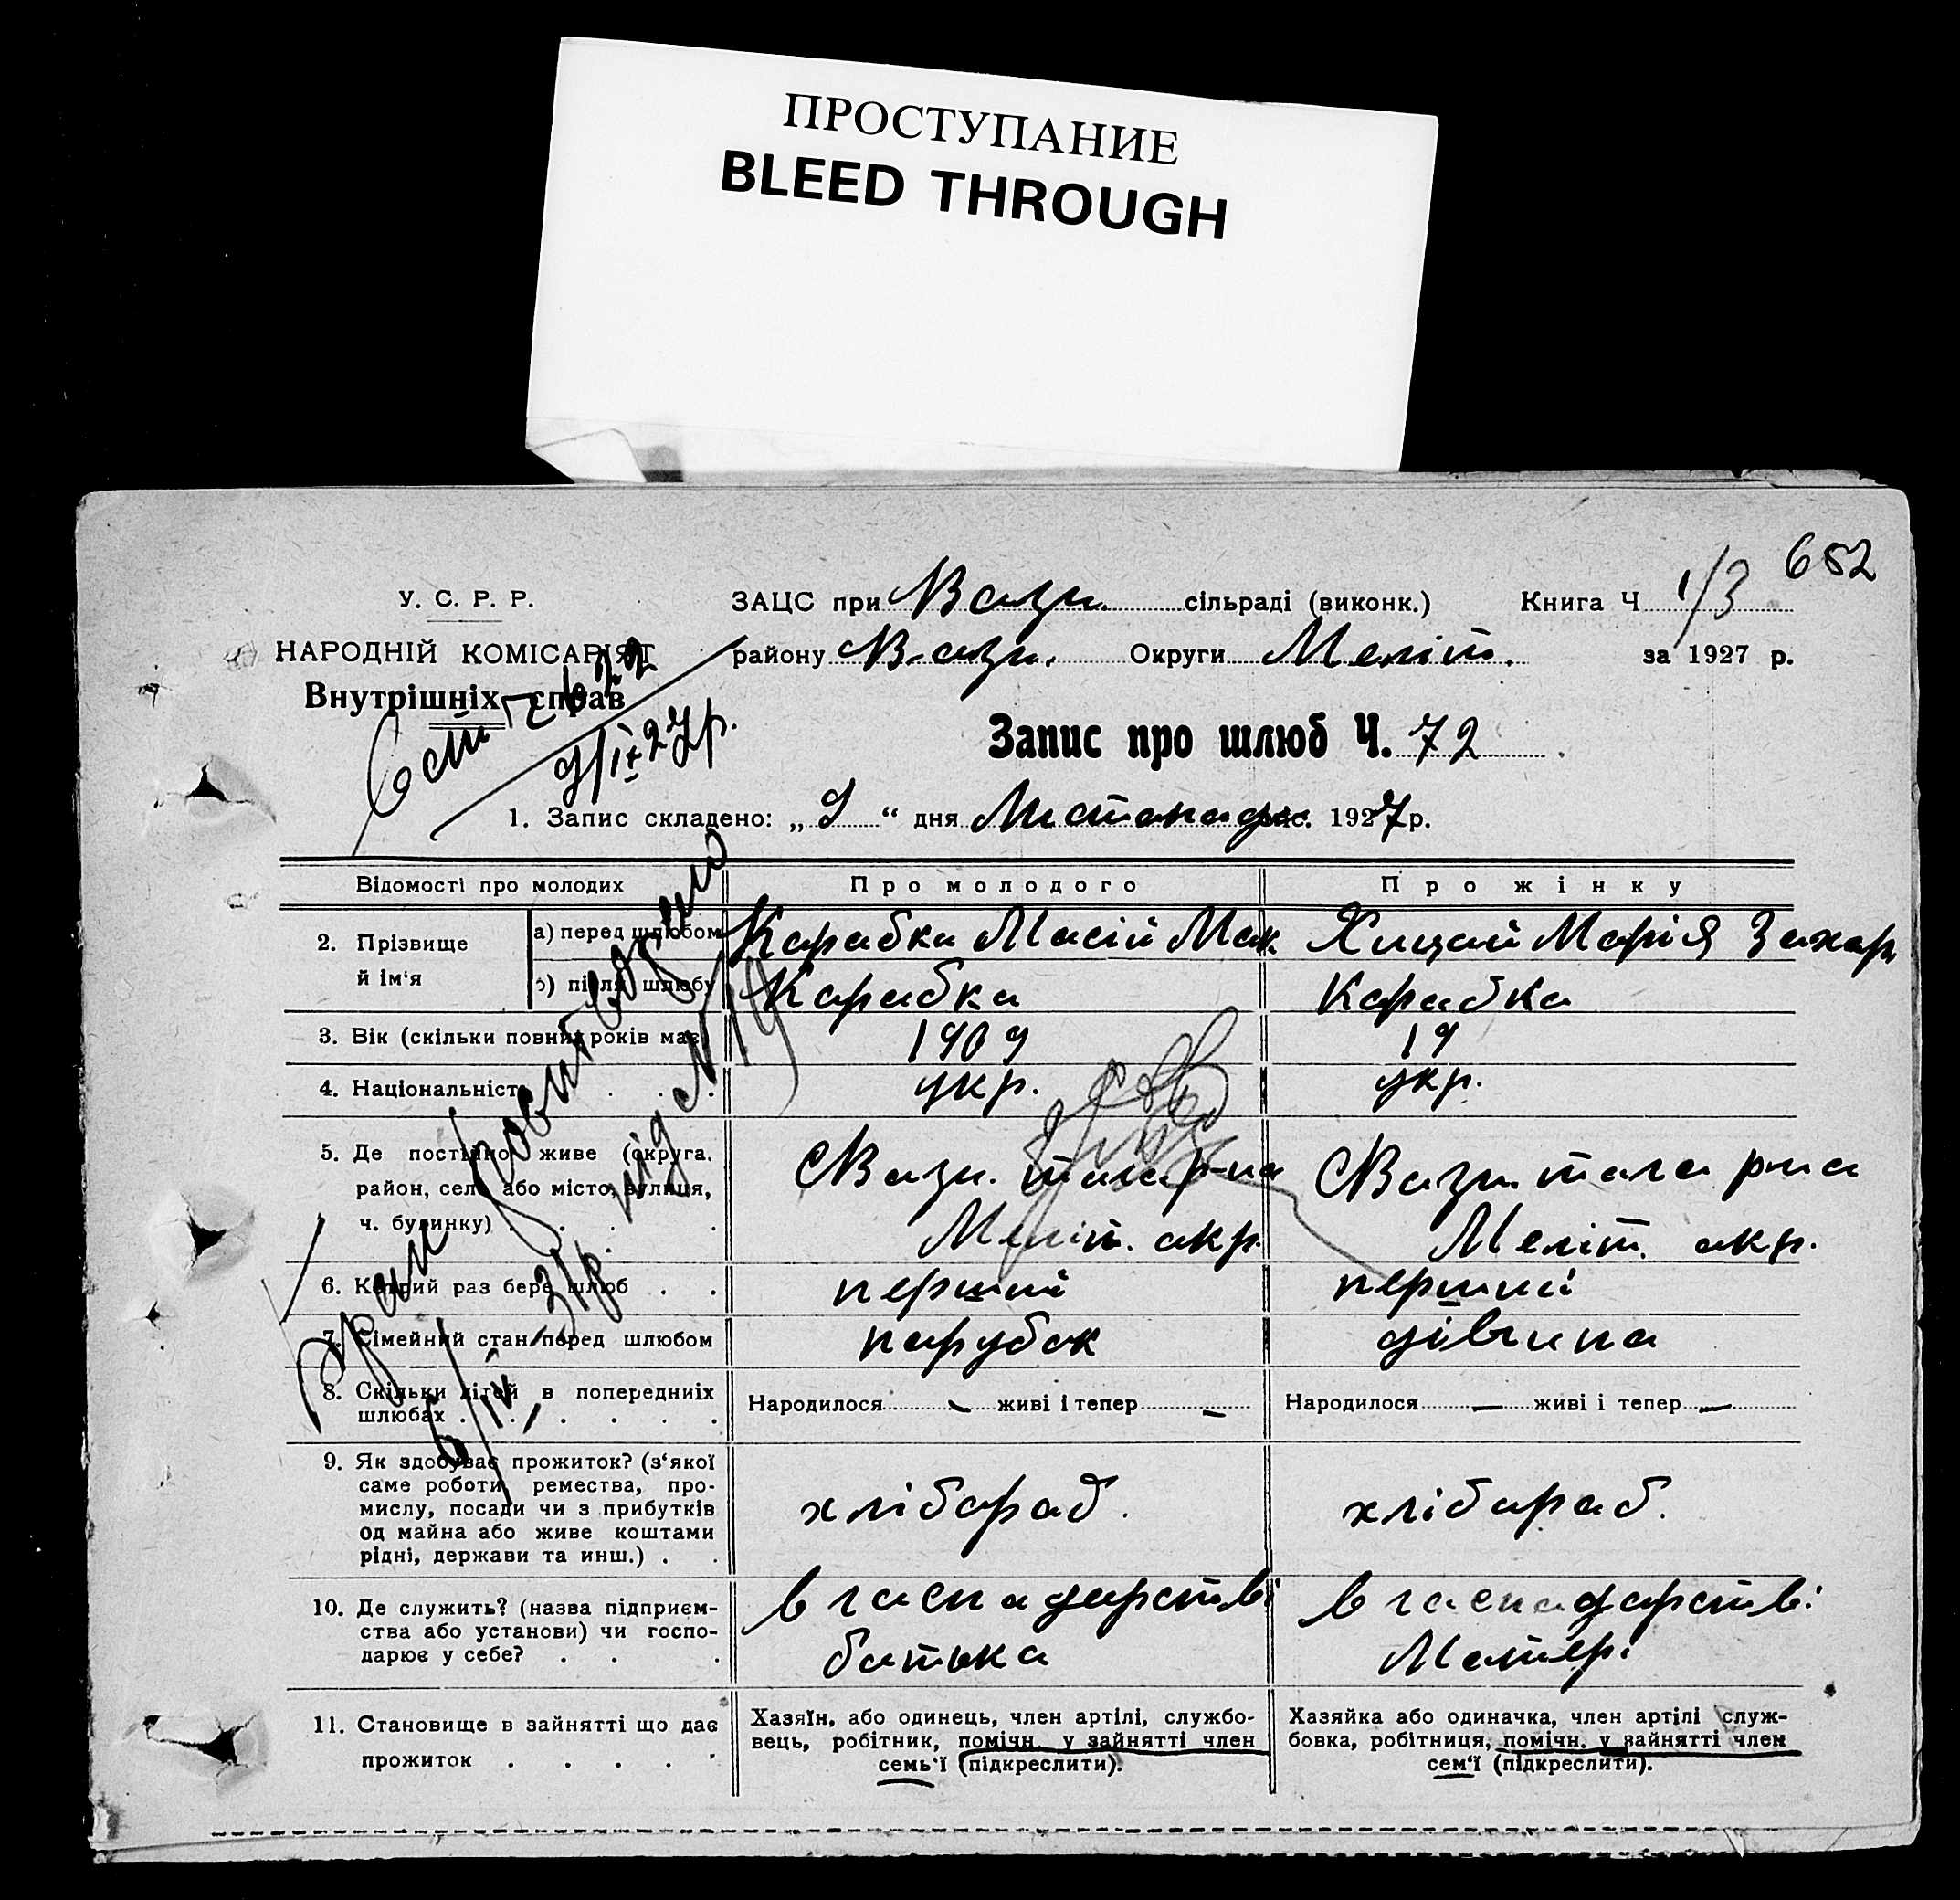 ПРОСТУПАНИЕ
BLEED THROUGH
652
У. С. Р. Р.
НАРОДНІЙ КОМІСАРІЯТ
Внутрішніх справ
ЗАЦС при Вазн. сільраді (виконк.) Книга Ч 1/3
району В-азн. Округи Меліт. за 1927 р.
9/IX 27 р.
Запис про шлюб Ч. 72
1. Запис складено: „ 9 “ дня Листопада міс. 1927 р.
Відомості про молодих Про молодого Про жінку
2. Прізвище й ім‘я
а) перед шлюбом Карабка Масій Мак Хицай Марія Захар
б) після шлюбу Карабка Карабка
3. Вік (скільки повних років має) 1909 19
4. Національність . . . укр. укр.
5. Де постійно живе (округа, район, село або місто, вулиця, ч. будинку) . . .
СВазн. тога р-на СВазн. тога рна
Меліт. акр. Меліт. акр.
6. Котрий раз бере шлюб . . перший перший
7. Сімейний стан перед шлюбом парубок дівчина
8. Скільки дітей в попередніх шлюбах . . . . . .
Народилося — живі і тепер — Народилося — живі і тепер —
9. Як здобуває прожиток? (з‘якої саме роботи, ремества, промислу, посади чи з прибутків од майна або живе коштами рідні, держави та инш.) . .
хлібораб. хлібораб.
10. Де служить? (назва підприємства або установи) чи господарює у себе? . . .
в гаспадарстві в гаспадарстві
батька Матері
11. Становище в зайнятті що дає прожиток . . . . .
Хазяїн, або одинець, член артілі, службовець, робітник, помічн. у зайнятті член семь‘ї (підкреслити).
Хазяйка або одиначка, член артілі службовка, робітниця, помічн. у зайнятті член сем‘ї (підкреслити).
під № 19
6/IV-31р.